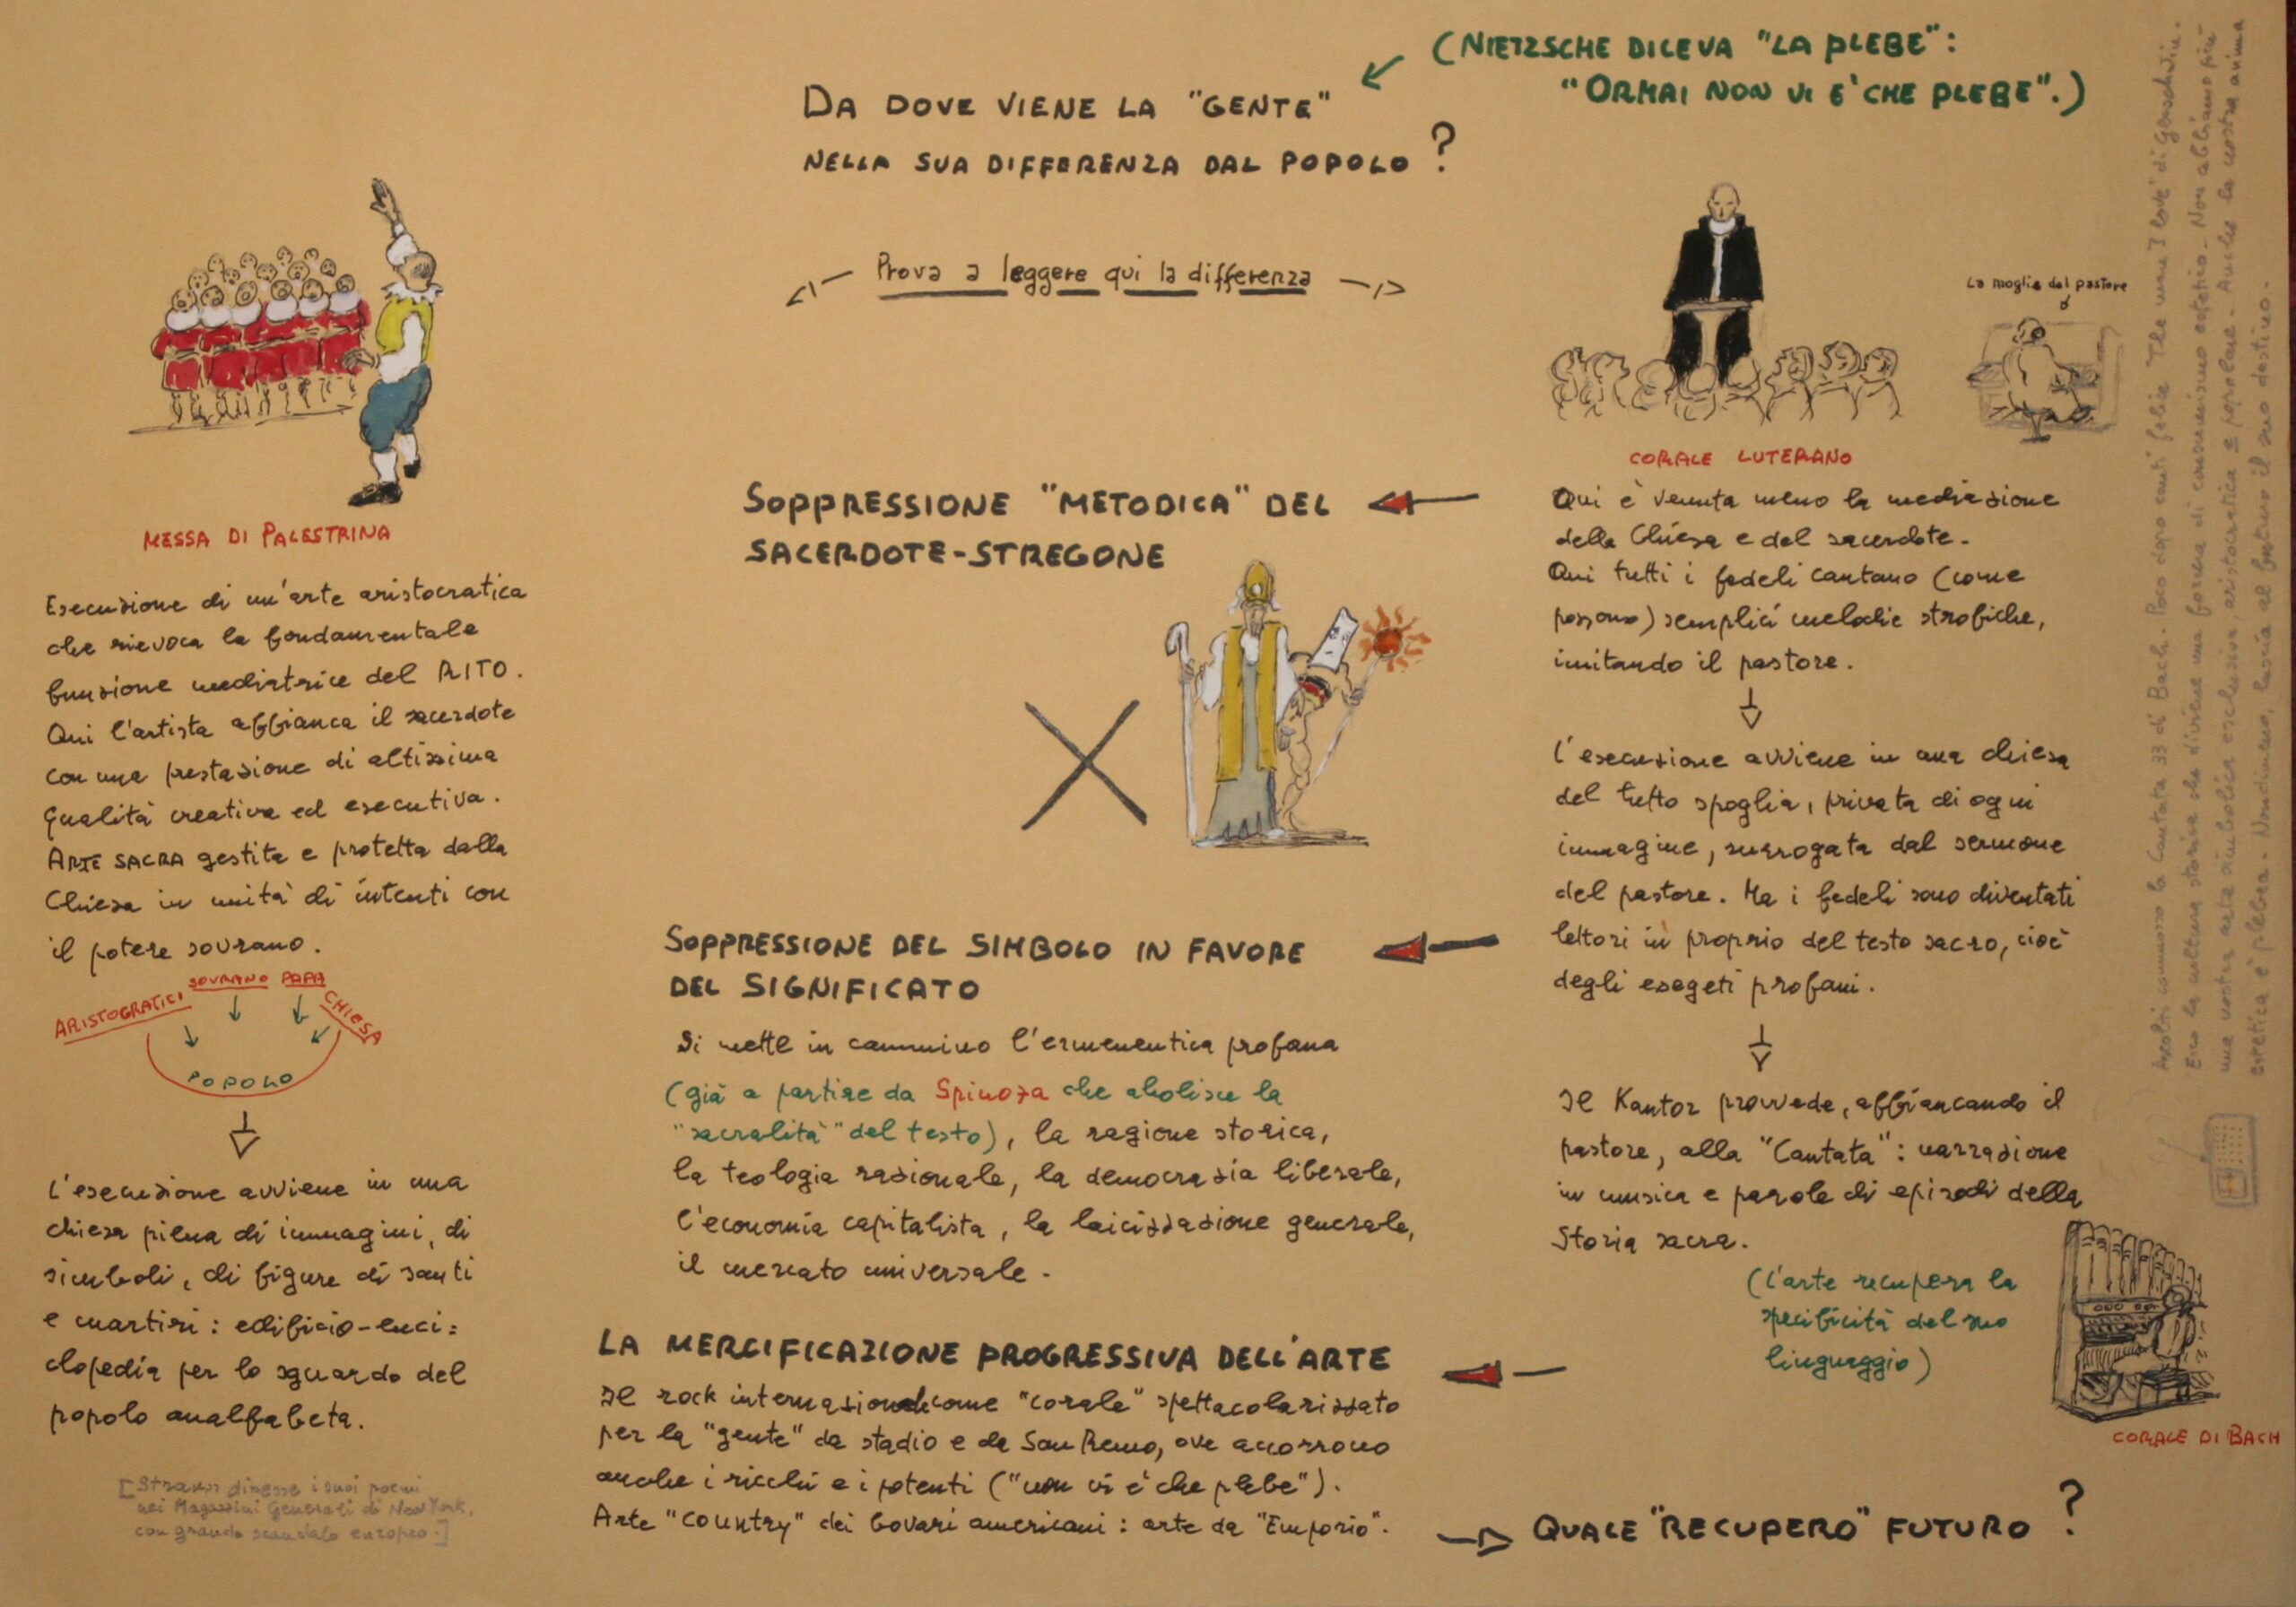 (NIETZSCHE DICEVA "LA PLEBE":
"ORMAI NON VI E' CHE PLEBE".)
DA DOVE VIENE LA "GENTE"
NELLA SUA DIFFERENZA DAL POPOLO?
Prova a leggere qui la differenza
MESSA DI PALESTRINA
Esecuzione di un'arte aristocratica
che rievoca la fondamentale
funzione mediatrice del RITO.
Qui l'artista affianca il sacerdote
con una prestazione di altissima
qualità creativa ed esecutiva.
ARTE SACRA gestita e protetta dalla
Chiesa in unità di intenti con
il potere sovrano.
ARISTOGRATICI
SOVRANO
PAPA
CHIESA
POPOLO
L'esecuzione avviene in una
chiesa piena di immagini, di
simboli, di figure di santi
e martiri: edificio-enci=
clopedia per lo sguardo del
popolo analfabeta.
[Strauss diresse i suoi poemi
nei Magazzini Generali di New York,
con grande scandalo europeo.]
SOPPRESSIONE "METODICA" DEL
SACERDOTE-STREGONE
SOPPRESSIONE DEL SIMBOLO IN FAVORE
DEL SIGNIFICATO
Si mette in cammino l'ermeneutica profana
(già a partire da Spinoza che abolisce la
"sacralità" del testo), la ragione storica,
la teologia razionale, la democrazia liberale,
l'economia capitalista, la laicizzazione generale,
il mercato universale.
LA MERCIFICAZIONE PROGRESSIVA DELL'ARTE
Il rock internazionale come "corale" spettacolarizzato
per la "gente" da stadio e da San Remo, ove accorrono
anche i ricchi e i potenti ("non vi è che plebe").
Arte "country" dei bovari americani: arte da "Emporio".
La moglie del pastore
CORALE LUTERANO
Qui è venuta meno la mediazione
della Chiesa e del sacerdote.
Qui tutti i fedeli cantano (come
possono) semplici melodie strofiche,
imitando il pastore.
L'esecuzione avviene in una chiesa
del tutto spoglia, privata di ogni
immagine, surrogata dal sermone
del pastore. Ma i fedeli sono diventati
lettori in proprio del testo sacro, cioè
degli esegeti profani.
Il Kantor provvede, affiancando il
pastore, alla "Cantata": narrazione
in musica e parole di episodi della
Storia sacra.
(L'arte recupera la
specificità del suo
linguaggio)
CORALE DI BACH
QUALE "RECUPERO" FUTURO?
Ascolti commosso la Cantata 33 di Bach. Poco dopo canti felice The man I love di Gershwin.
Ecco la cultura storica che diviene una forma di consumismo estetico. Non abbiamo più
una nostra arte simbolica esclusiva, aristocratica e popolare. Anche la nostra anima
estetica è plebea. Nondimeno, lascia al futuro il suo destino.